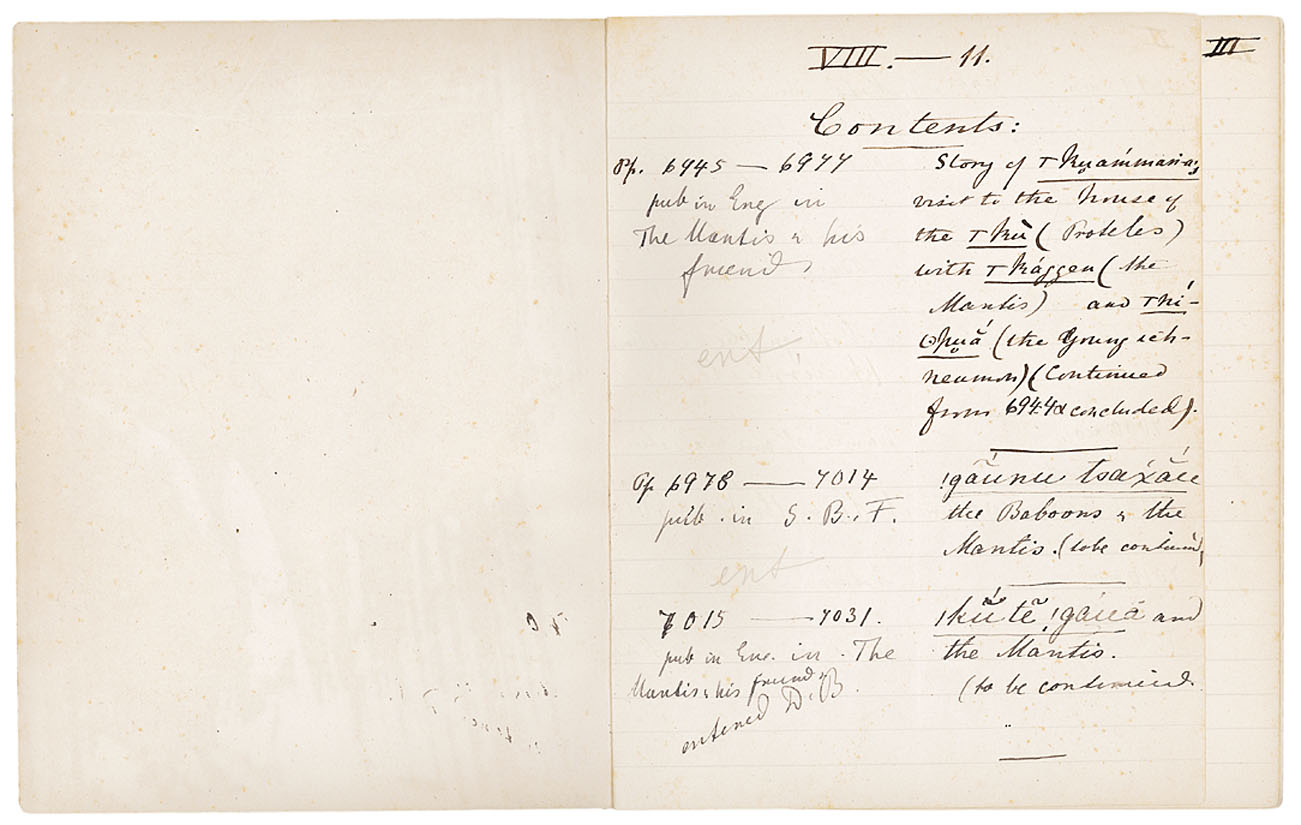 VIII. — 11.
III
Contents:
Pp. 6945 — 6977
pub in Eng in
The Mantis & his
friend
ent
Story of ⊤kụammaṅ-a's
visit to the house of
the ⊤kù (Proteles)
with ⊤kággen (the
Mantis) and ⊤ní-
ʘpụắ (the Young ich-
neumon) (Continued
from 6944 & concluded).
Pp 6978 — 7014
pub. in S. B. F.
ent
!gā́unu tsaχău
the Baboons & the
Mantis. (to be continu
7015 — 7031.
pub in Eng. in The
Mantis & his friends
entered D. B.
!kŭ́ tĕ !gáuā and
the Mantis.
(to be continued